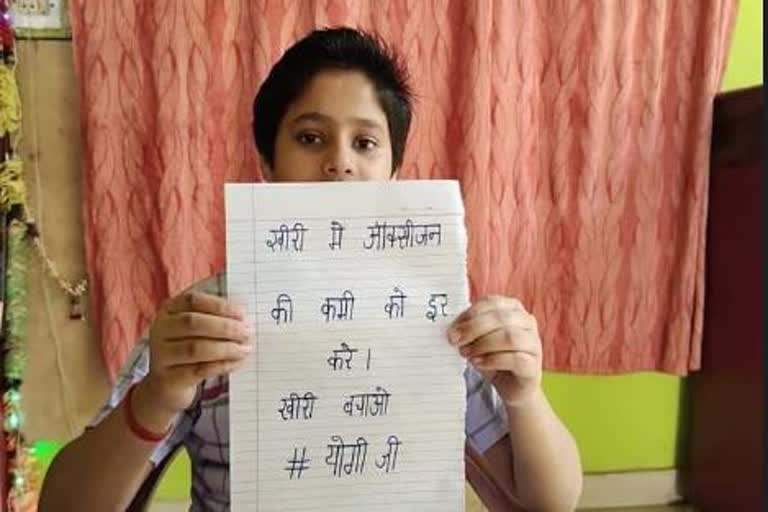 खीरी मे ऑक्सीजन
की कमी को दूर
करे।
खीरी बचाओ
# योगी जी